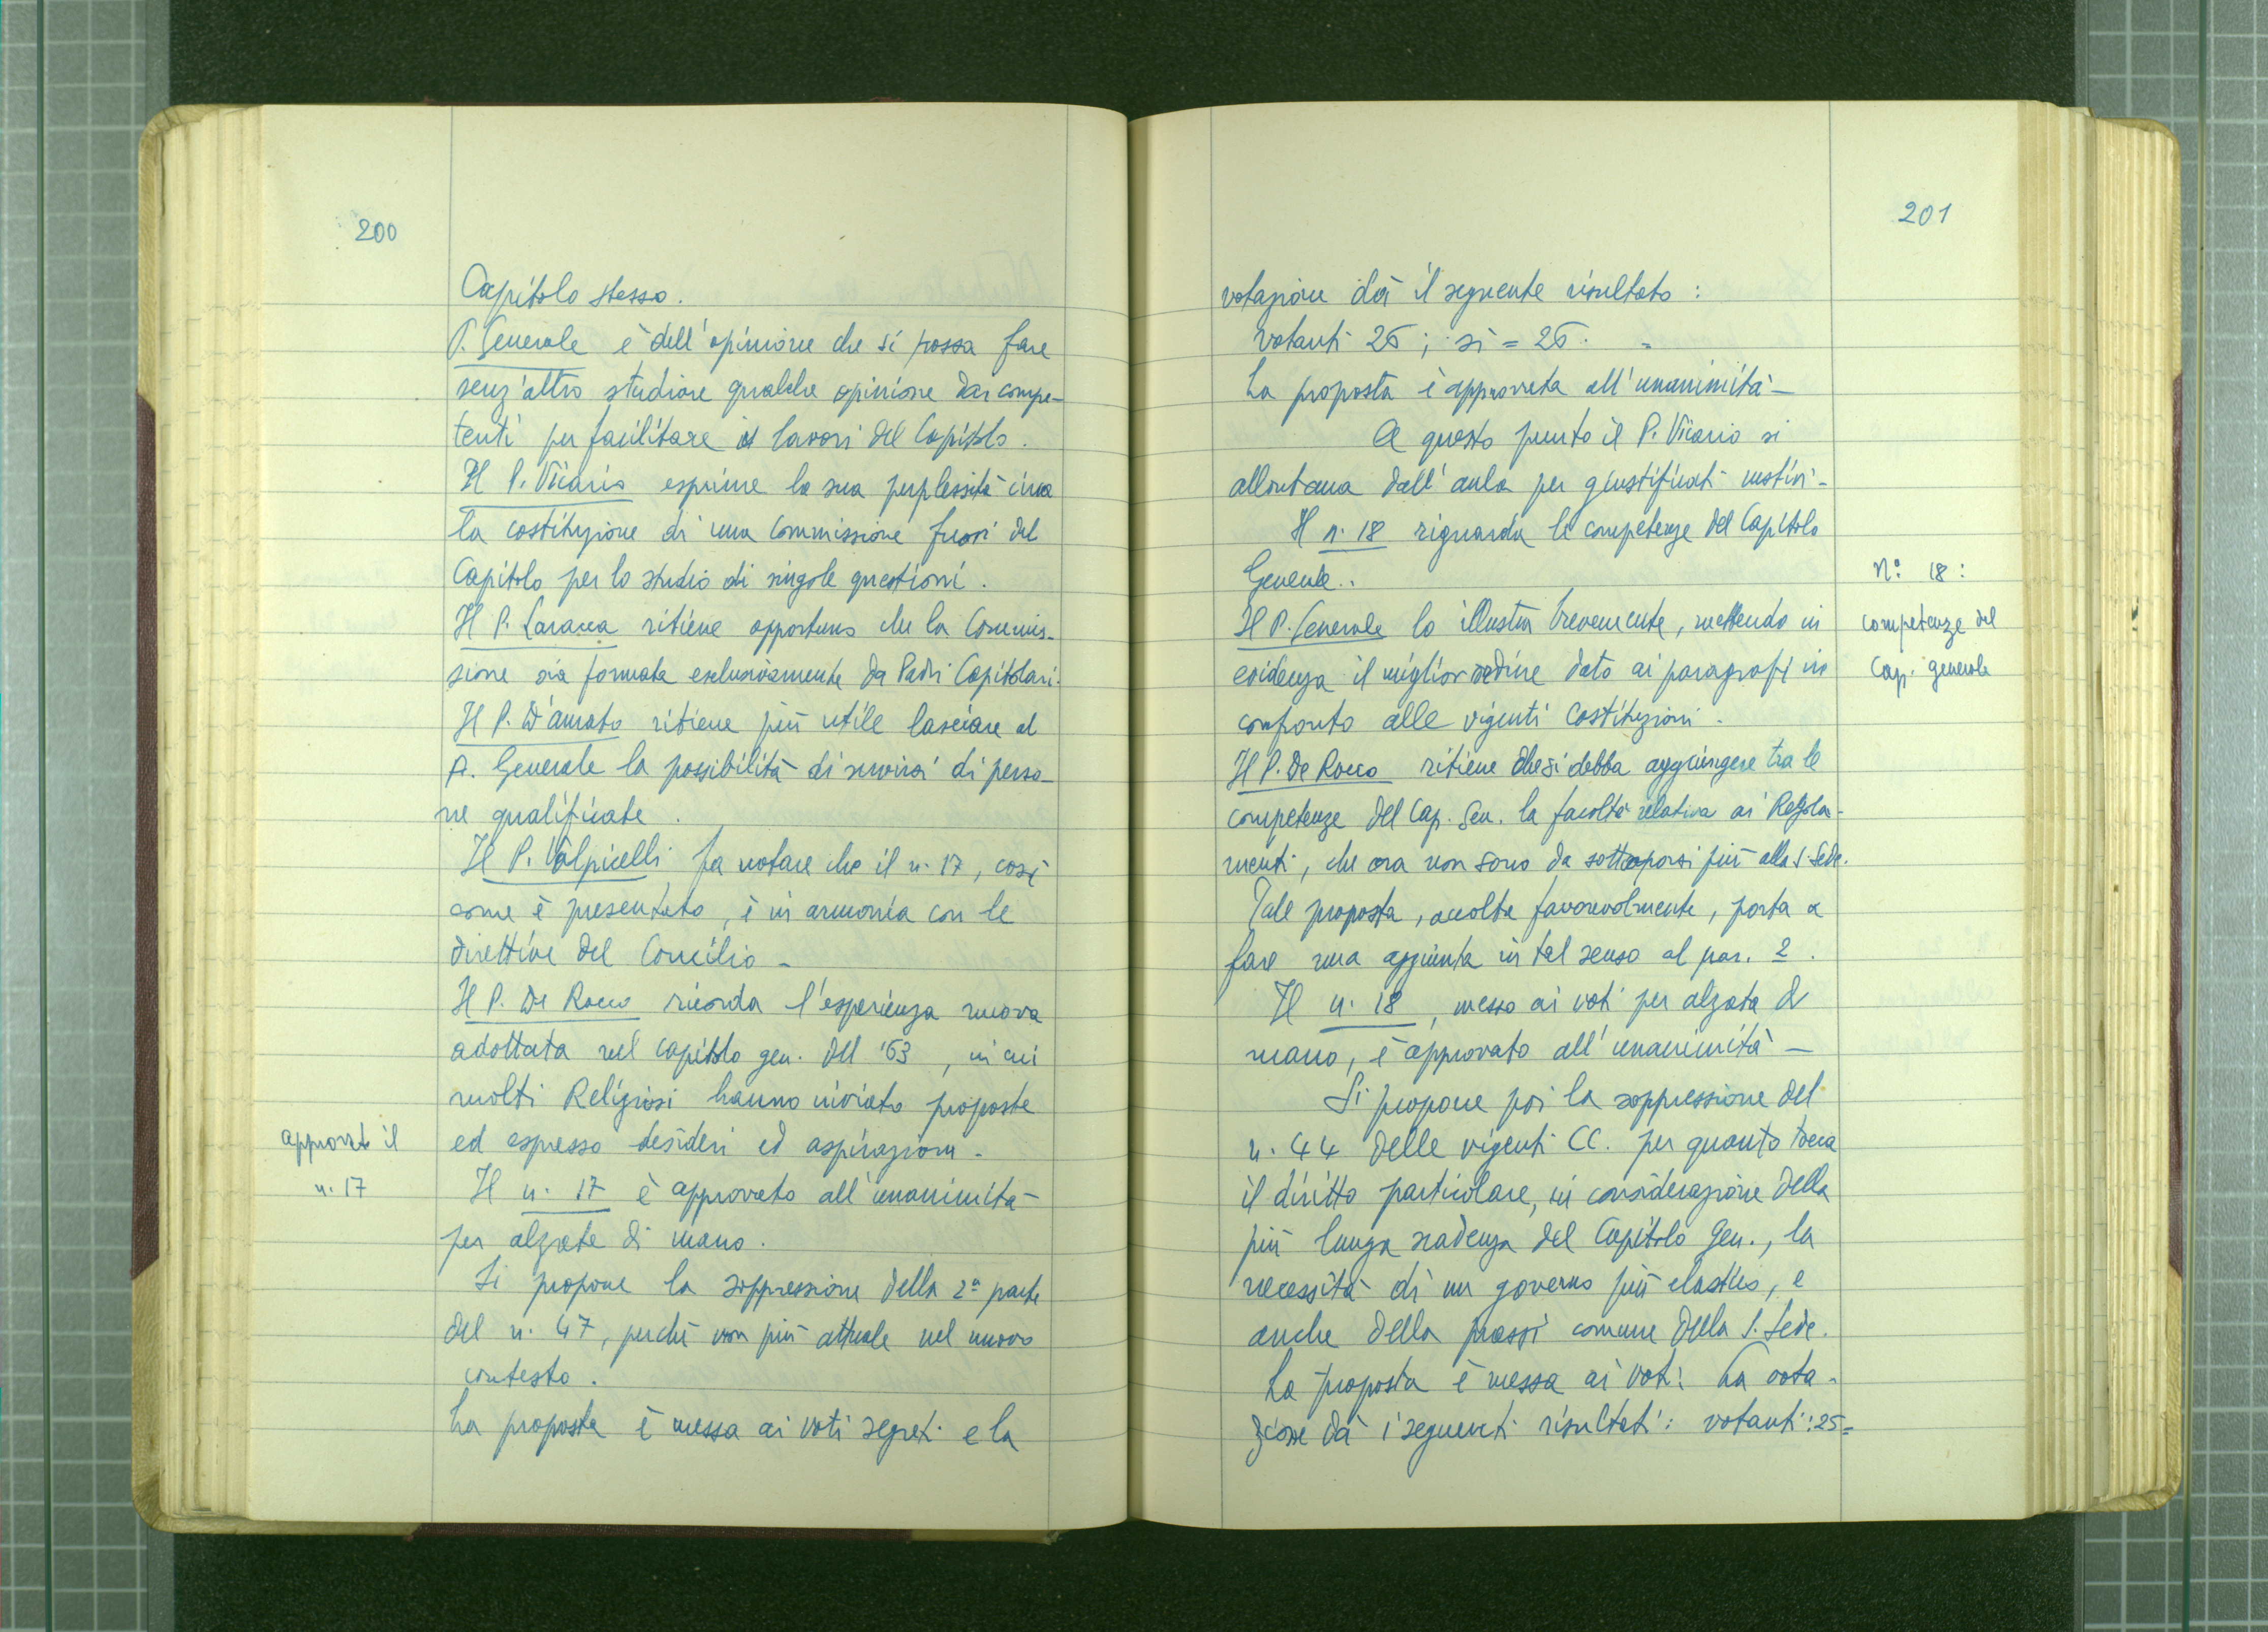 200
Capitolo stesso.
P. Generale è dell'opinione che si possa fare
senz'altro studiare qualche opinione dai compe-
tenti per facilitare i lavori del Capitolo.
Il P. Vicario esprime la sua perplessità circa
la costituzione di una Commissione fuori del
Capitolo per lo studio di singole questioni.
Il P. Laracca ritiene opportuno che la Commis-
sione sia formata esclusivamente da Padri Capitolari.
Il P. D'amato ritiene più utile lasciare al
P. Generale la possibilità di servirsi di perso-
ne qualificate.
Il P. Volpicelli fa notare che il n. 17, così
come è presentato, è in armonia con le
direttive del Concilio -
Il P. De Rocco ricorda l'esperienza nuova
adottata nel capitolo gen. del '63, in cui
molti Religiosi hanno inviato proposte
approvato il
ed espresso desideri ed aspirazioni -
n. 17
Il n. 17 è approvato all'unanimità
per alzata di mano.
Si propone la soppressione della 2ª parte
del n. 47, perché non più attuale nel nuovo
contesto.
La proposta è messa ai voti segreti e la
201
votazione dà il seguente risultato:
votanti 26; sì = 26. =
La proposta è approvata all'unanimità -
A questo punto il P. Vicario si
allontana dall'aula per giustificati motivi -
Il n. 18 riguarda le competenze del Capitolo
Generale.
N.° 18:
competenze del
Cap. generale
Il P. Generale lo illustra brevemente, mettendo in
evidenza il miglior ordine dato ai paragrafi in
confronto alle vigenti Costituzioni.
Il P. De Rocco ritiene che si debba aggiungere tra le
competenze del Cap. Gen. la facoltà relativa ai Regola-
menti, che ora non sono da sottoporsi più alla S. Sede.
Tale proposta, accolta favorevolmente, porta a
fare una aggiunta in tal senso al par. 2.
Il n. 18, messo ai voti per alzata di
mano, è approvato all'unanimità -
Si propone poi la soppressione del
n. 44 delle vigenti CC. per quanto tocca
il diritto particolare, in considerazione della
più lunga scadenza del Capitolo Gen., la
necessità di un governo più elastico, e
anche della prassi comune della S. Sede.
La proposta è messa ai voti: La vota-
zione dà i seguenti risultati: votanti: 25=